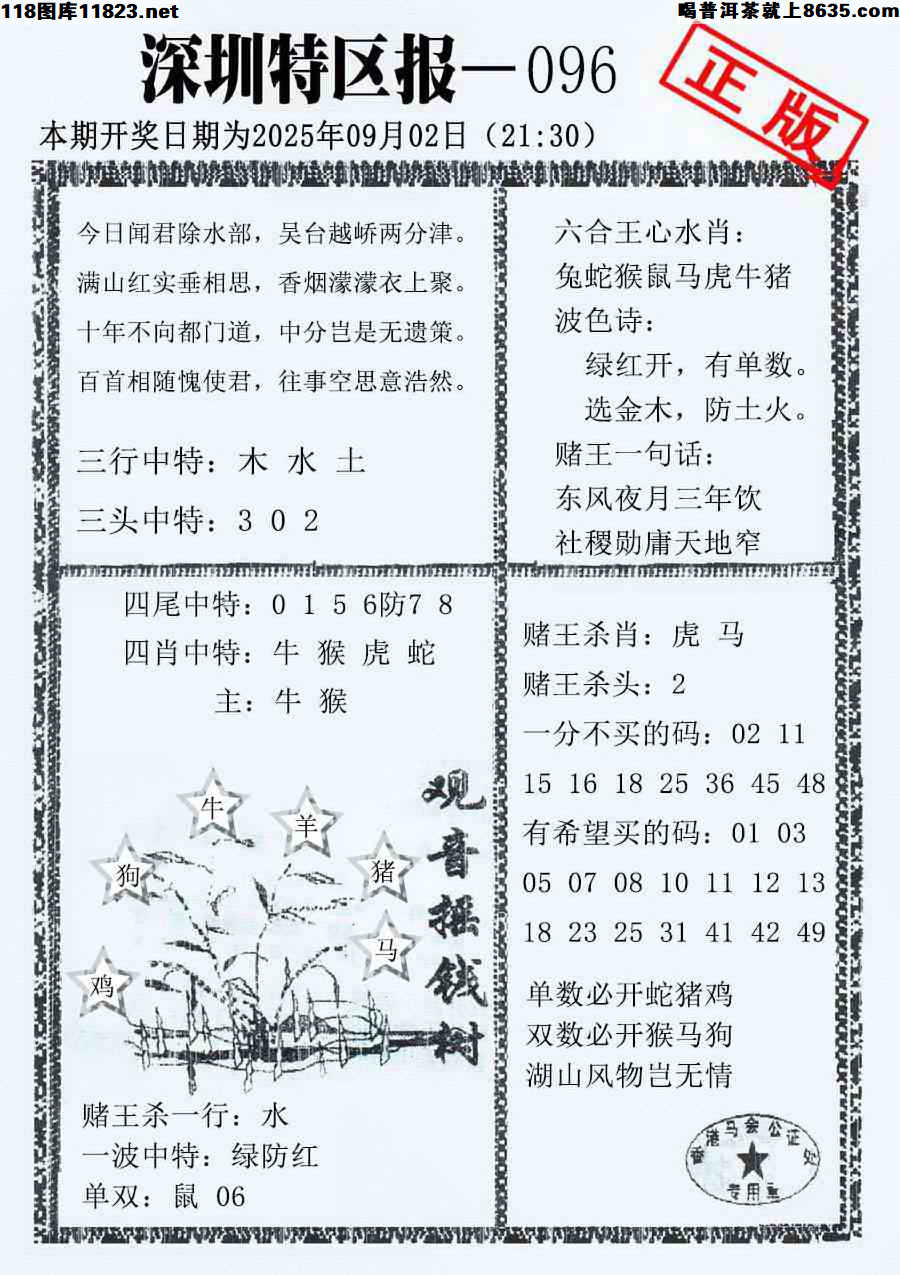 118图库11823.net
喝普洱茶就上8635.com
深圳特区报—096
正版
本期开奖日期为2025年09月02日（21:30）
今日闻君除水部，吴台越峤两分津。
满山红实垂相思，香烟濛濛衣上聚。
十年不向都门道，中分岂是无遗策。
百首相随愧使君，往事空思意浩然。
三行中特：木 水 土
三头中特：3 0 2
六合王心水肖：
兔蛇猴鼠马虎牛猪
波色诗：
绿红开，有单数。
选金木，防土火。
赌王一句话：
东风夜月三年饮
社稷勋庸天地窄
四尾中特：0 1 5 6防7 8
四肖中特：牛 猴 虎 蛇
主：牛 猴
牛
羊
狗
猪
马
鸡
观音摇钱树
赌王杀一行：水
一波中特：绿防红
单双：鼠 06
赌王杀肖：虎 马
赌王杀头：2
一分不买的码：02 11
15 16 18 25 36 45 48
有希望买的码：01 03
05 07 08 10 11 12 13
18 23 25 31 41 42 49
单数必开蛇猪鸡
双数必开猴马狗
湖山风物岂无情
香港马会公证处
专用章